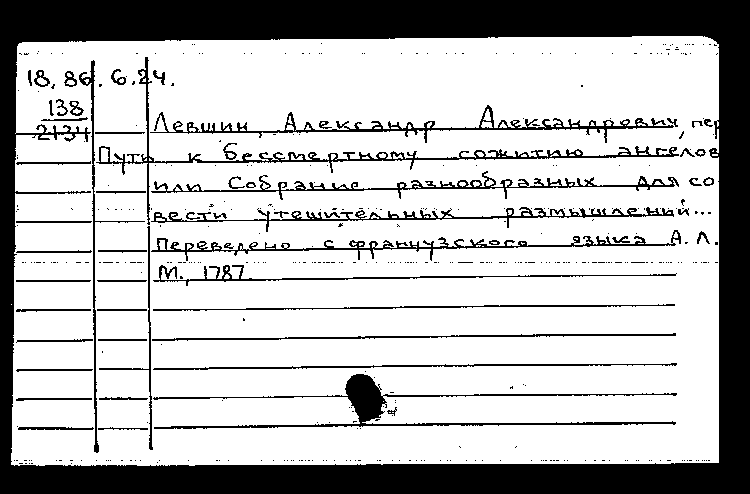 18.86.6.24.
138
2134
Левшин, Александр Александрович, пер
Путь к бессмертному сожитию ангелов
или Собрание разнообразных для со
вести утешительных размышлений...
Переведено с французского языка А. Л.
М., 1787.